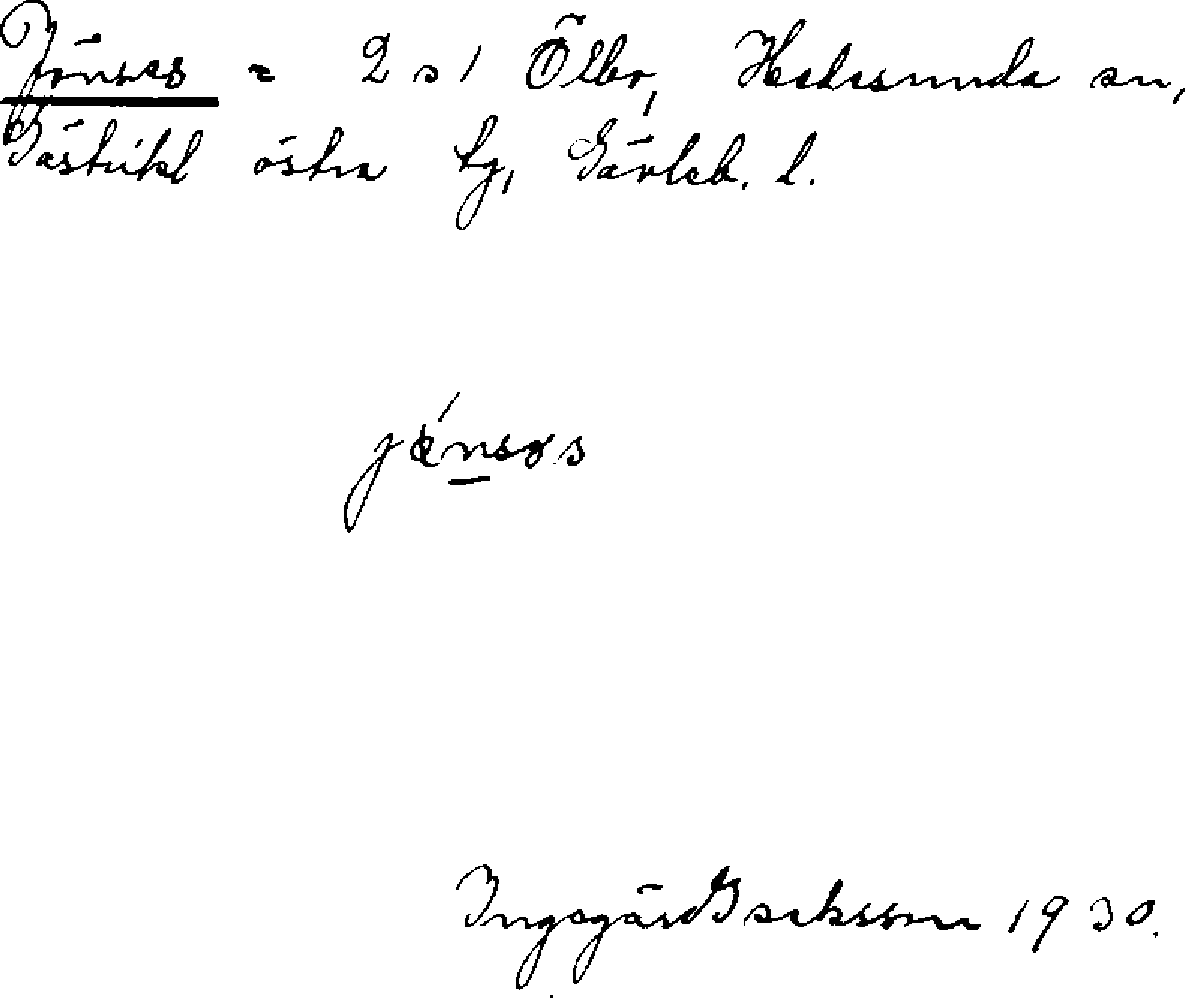 Jönses = 2 s 1 Ölbo, Hedesunda sn,
Gästrikl östra tg, Gävleb. l.
Ingegärd Isaksson 1930.